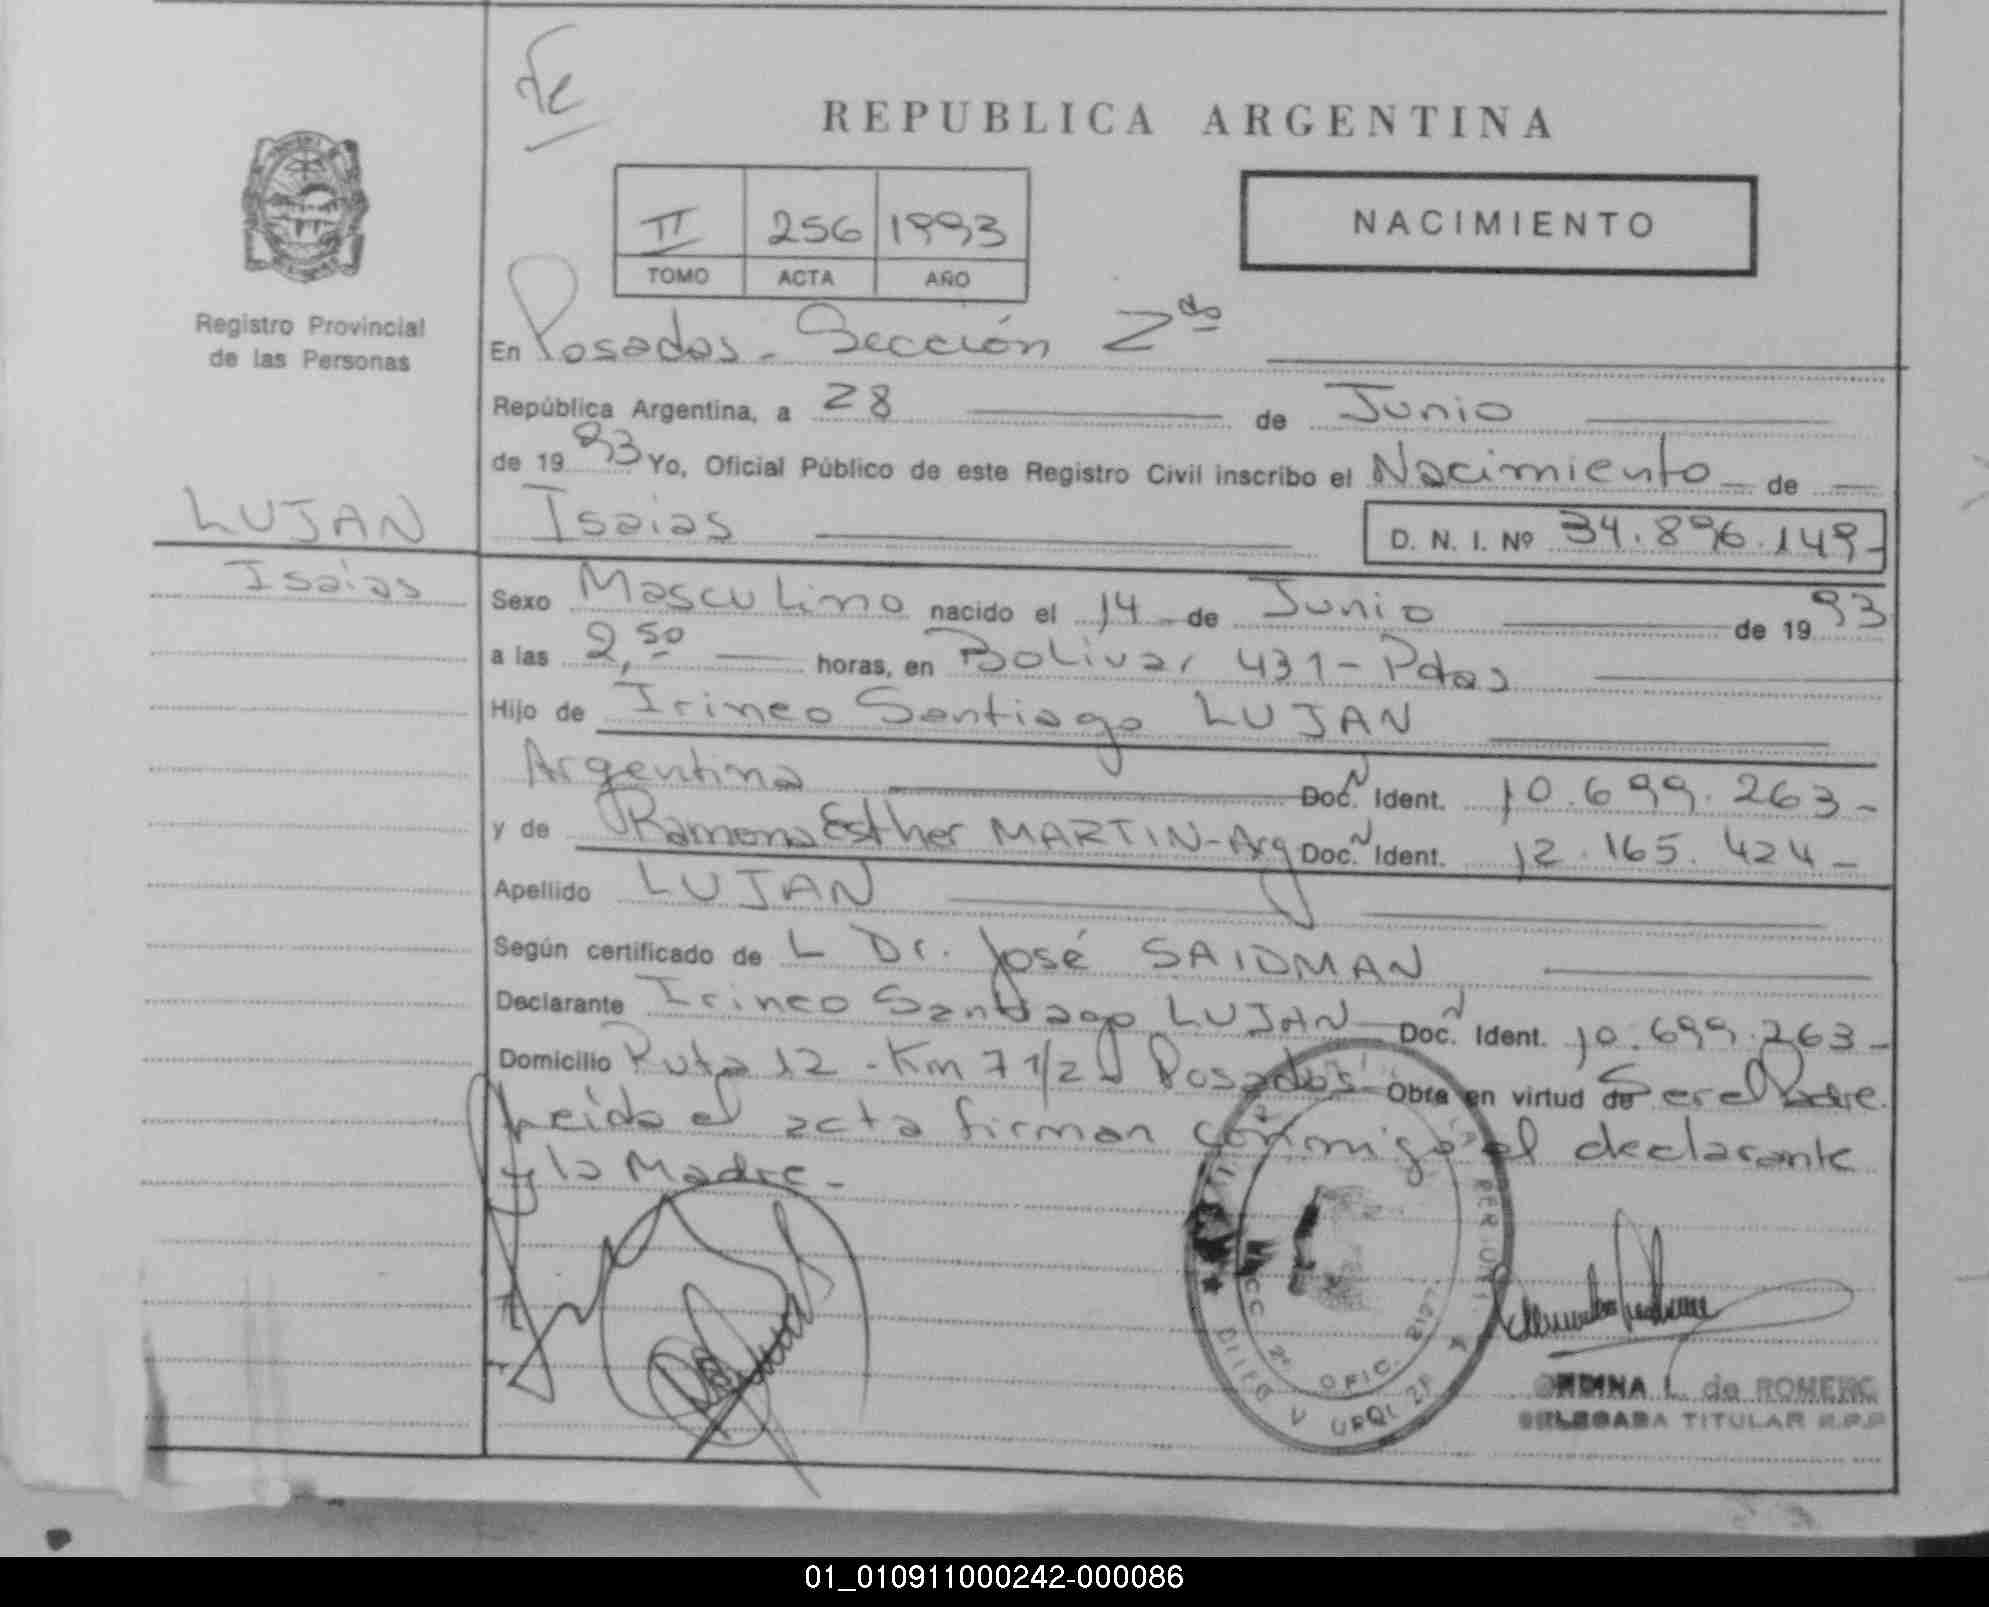 fe
REPUBLICA ARGENTINA
II 256 1993
TOMO ACTA AÑO
NACIMIENTO
Registro Provincial
de las Personas
En Posadas - Sección 2da
República Argentina, a 28 de Junio
de 1993 Yo, Oficial Público de este Registro Civil inscribo el Nacimiento de
LUJAN
Isaias
Isaias D. N. I. Nº 34.896.149-
Sexo Masculino nacido el 14 de Junio de 1993
a las 2,50 horas, en Bolivar 431 - Pdas
Hijo de Irineo Santiago LUJAN
Argentina Doc. Ident. 10.699.263-
y de Ramona Esther MARTIN - Arg Doc. Ident. 12.165.424-
Apellido LUJAN
Según certificado de L Dr. José SAIDMAN
Declarante Irineo Santiago LUJAN Doc. Ident. 10.699.263-
Domicilio Ruta 12 - Km 7 1/2 - Posadas Obra en virtud de Ser el Padre
Leida el acta firman conmigo el declarante
y la Madre.-
SECC 2ª OFIC.
de ROMERO
DELEGADA TITULAR R.P.P
01_010911000242-000086